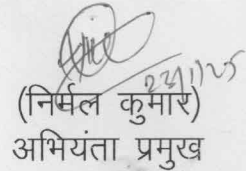 22/1/25
(निर्मल कुमार)
अभियंता प्रमुख